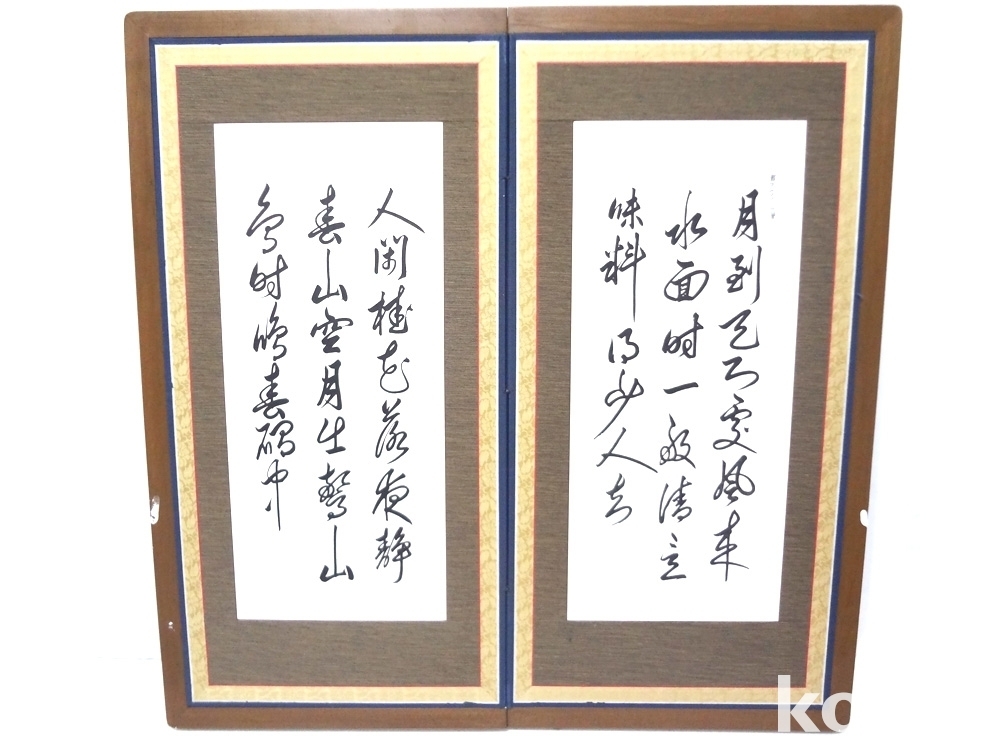 月到天心處風来
水面时一般清意
味料得少人知
人閑桂花落夜静
春山空月出驚山
鳥时鳴春磵中
ko